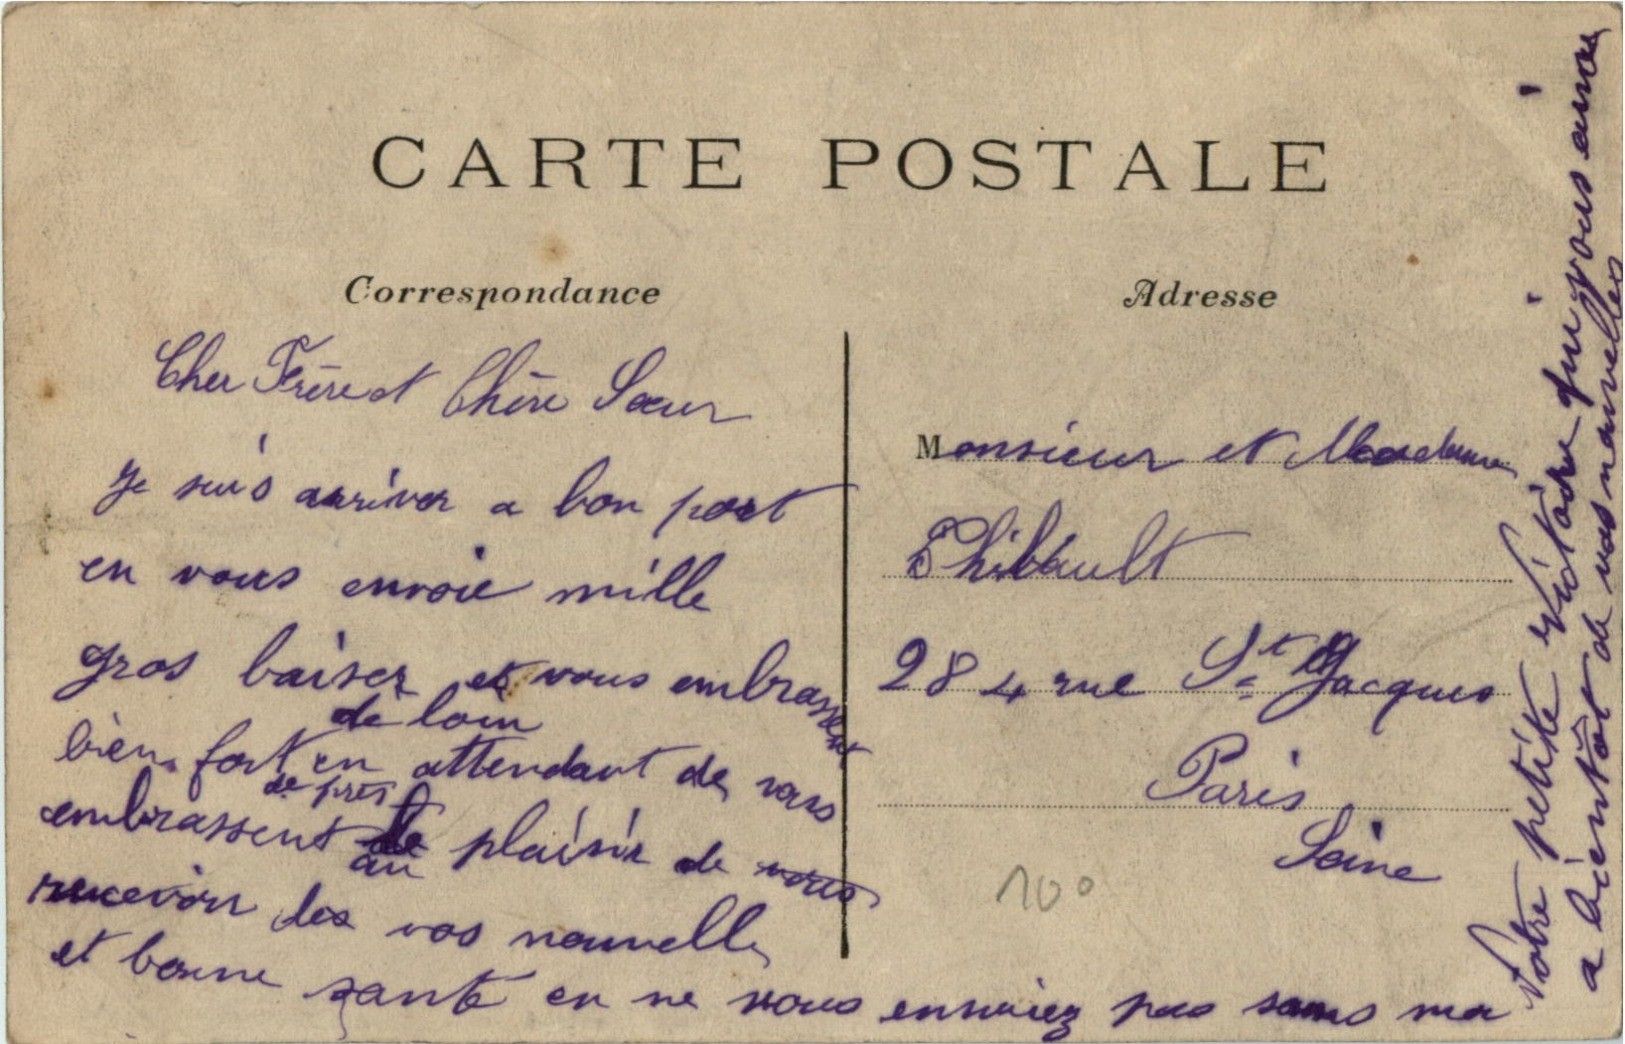 CARTE POSTALE
Correspondance
Cher Frère et Chère Sœur
Je suis arriver a bon port
en vous envoie mille
gros baiser et vous embrassent
de loin
bien fort en attendant de vous
de près
embrassent le plaisir de vous
au
recevoir des vos nouvelle
et bonne santé en ne vous ennuiez pas sans moi
Adresse
Monsieur et Madame
Thibault
284 rue St Jacques
Paris
Seine
100
Votre petite Victoire qui vous
a bientôt de vos nouvelles